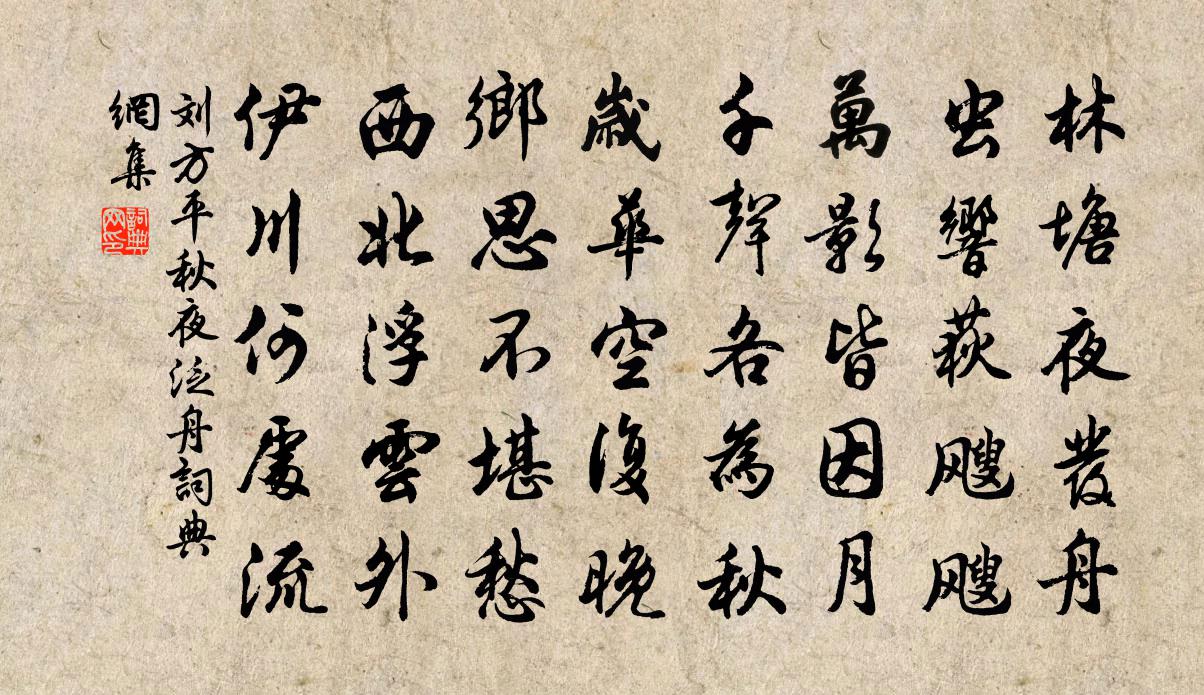 林塘夜發舟
虫響荻飕飕
萬影皆因月
千聲各為秋
歲華空復晚
鄉思不堪愁
西北浮雲外
伊川何處流
刘方平秋夜泛舟詞典
網集
詞典
网印